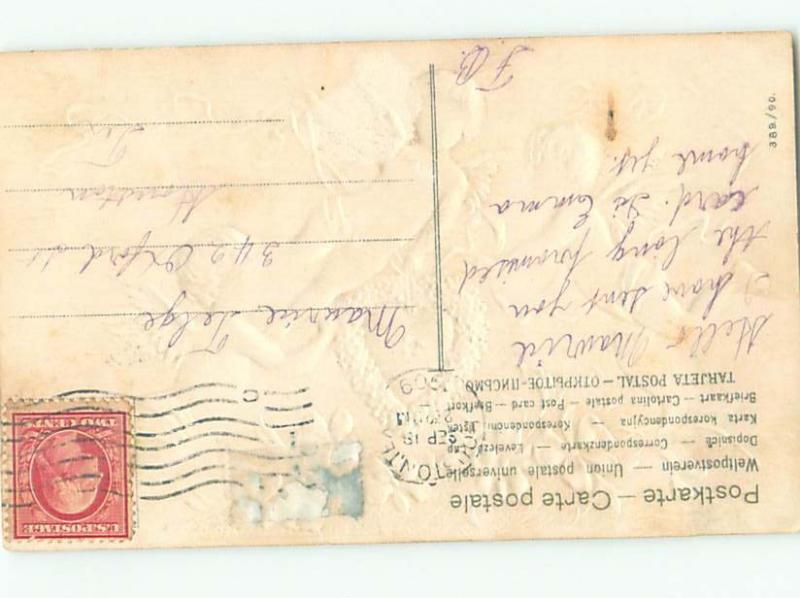 Postkarte – Carte postale
Weltpostverein — Union postale universelle
Dopisnica — Correspondenzkarte — Levelező-Lap
Karta korespondencyjna — Korespondenční lístek
Briefkaart - Cartolina postale - Post card - Brefkort
TARJETA POSTAL – ОТКРЫТОЕ-ПИСЬМО
Hello Mauricd
I have sent you
the long promised
card. Is Emma
home yet.
F.B.
Maurice Telge
349 Oxford st
Houston
Tex
SEP 18
1909
U.S. POSTAGE
TWO CENTS
389/90.